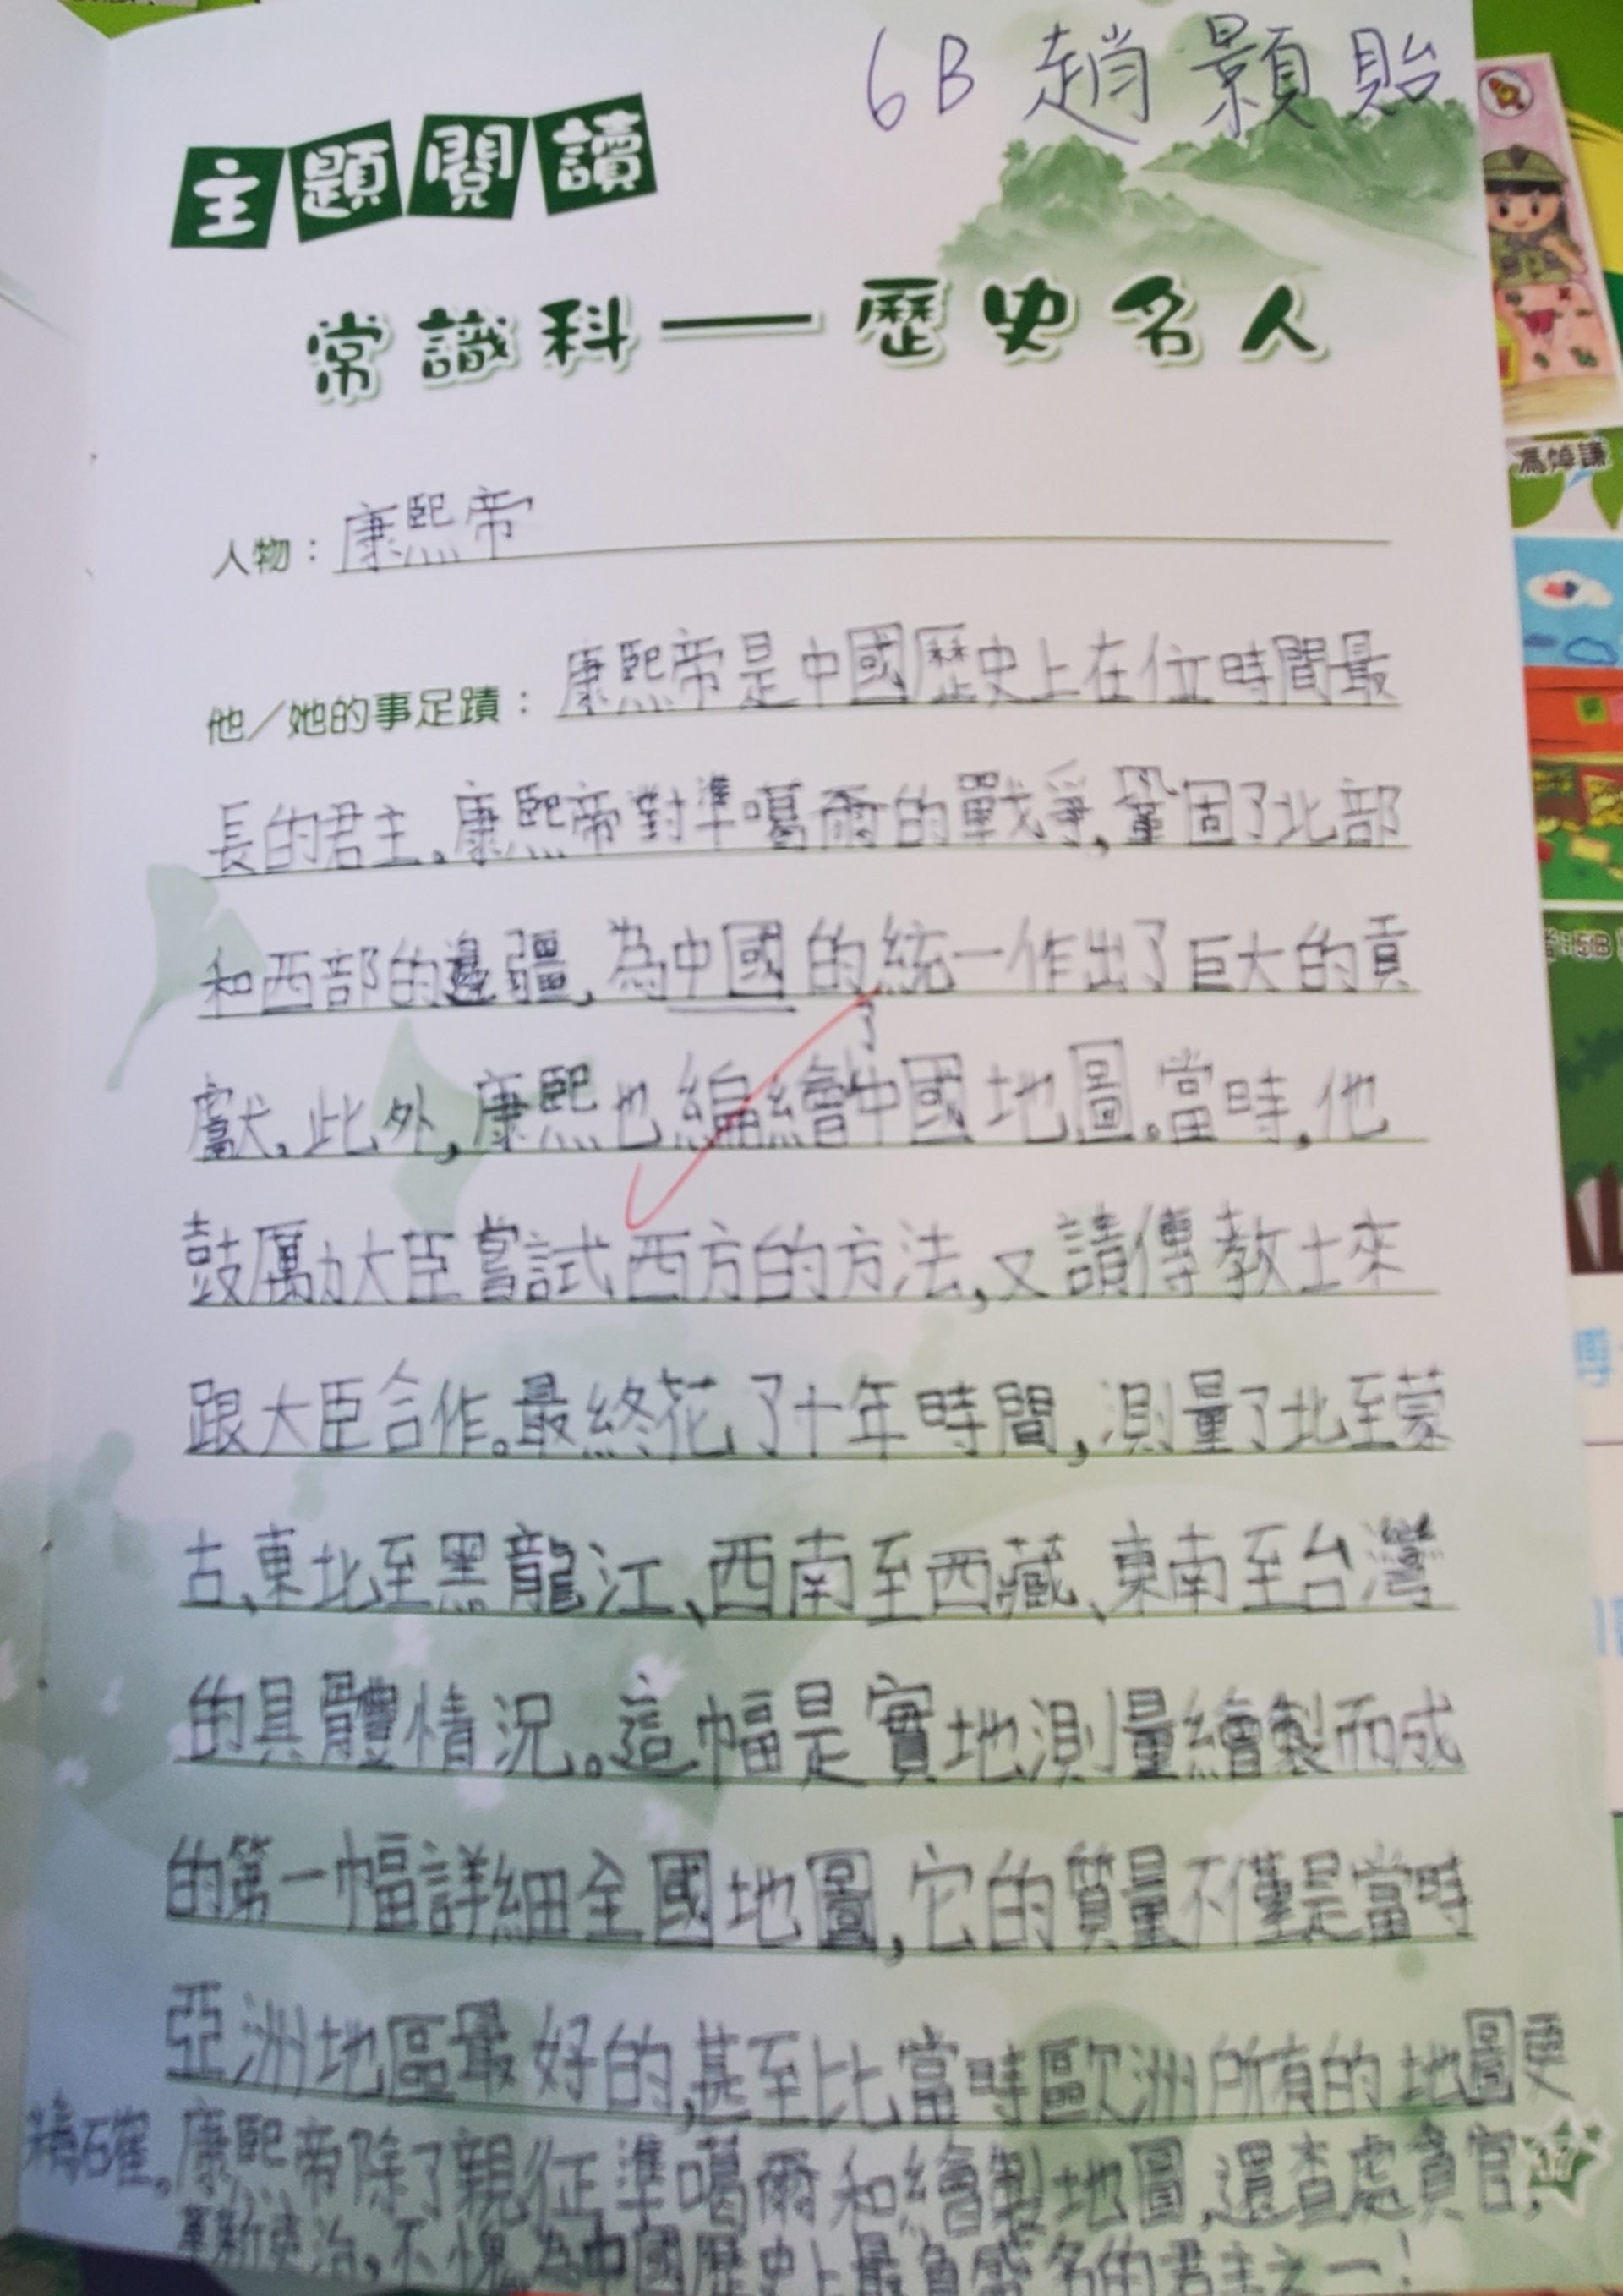 6B 趙顥貽
主題閱讀
常識科──歷史名人
馮焯謙
人物：康熙帝
他／她的事足蹟：康熙帝是中國歷史上在位時間最
長的君主。康熙帝對準噶爾的戰爭,鞏固了北部
和西部的邊疆,為中國的統一作出了巨大的貢
獻。此外,康熙也編繪了中國地圖。當時,他
鼓厲力大臣嘗試西方的方法,又請傳教士來
跟大臣合作。最終花了十年時間,測量了北至蒙
古、東北至黑龍江、西南至西藏、東南至台灣
的具體情況。這幅是實地測量繪製而成
的第一幅詳細全國地圖,它的質量不僅是當時
亞洲地區最好的,甚至比當時歐洲所有的地圖更
精確。康熙帝除了親征準噶爾和繪製地圖,還查處貪官,
革新吏治,不愧為中國歷史上最負盛名的君主之一!